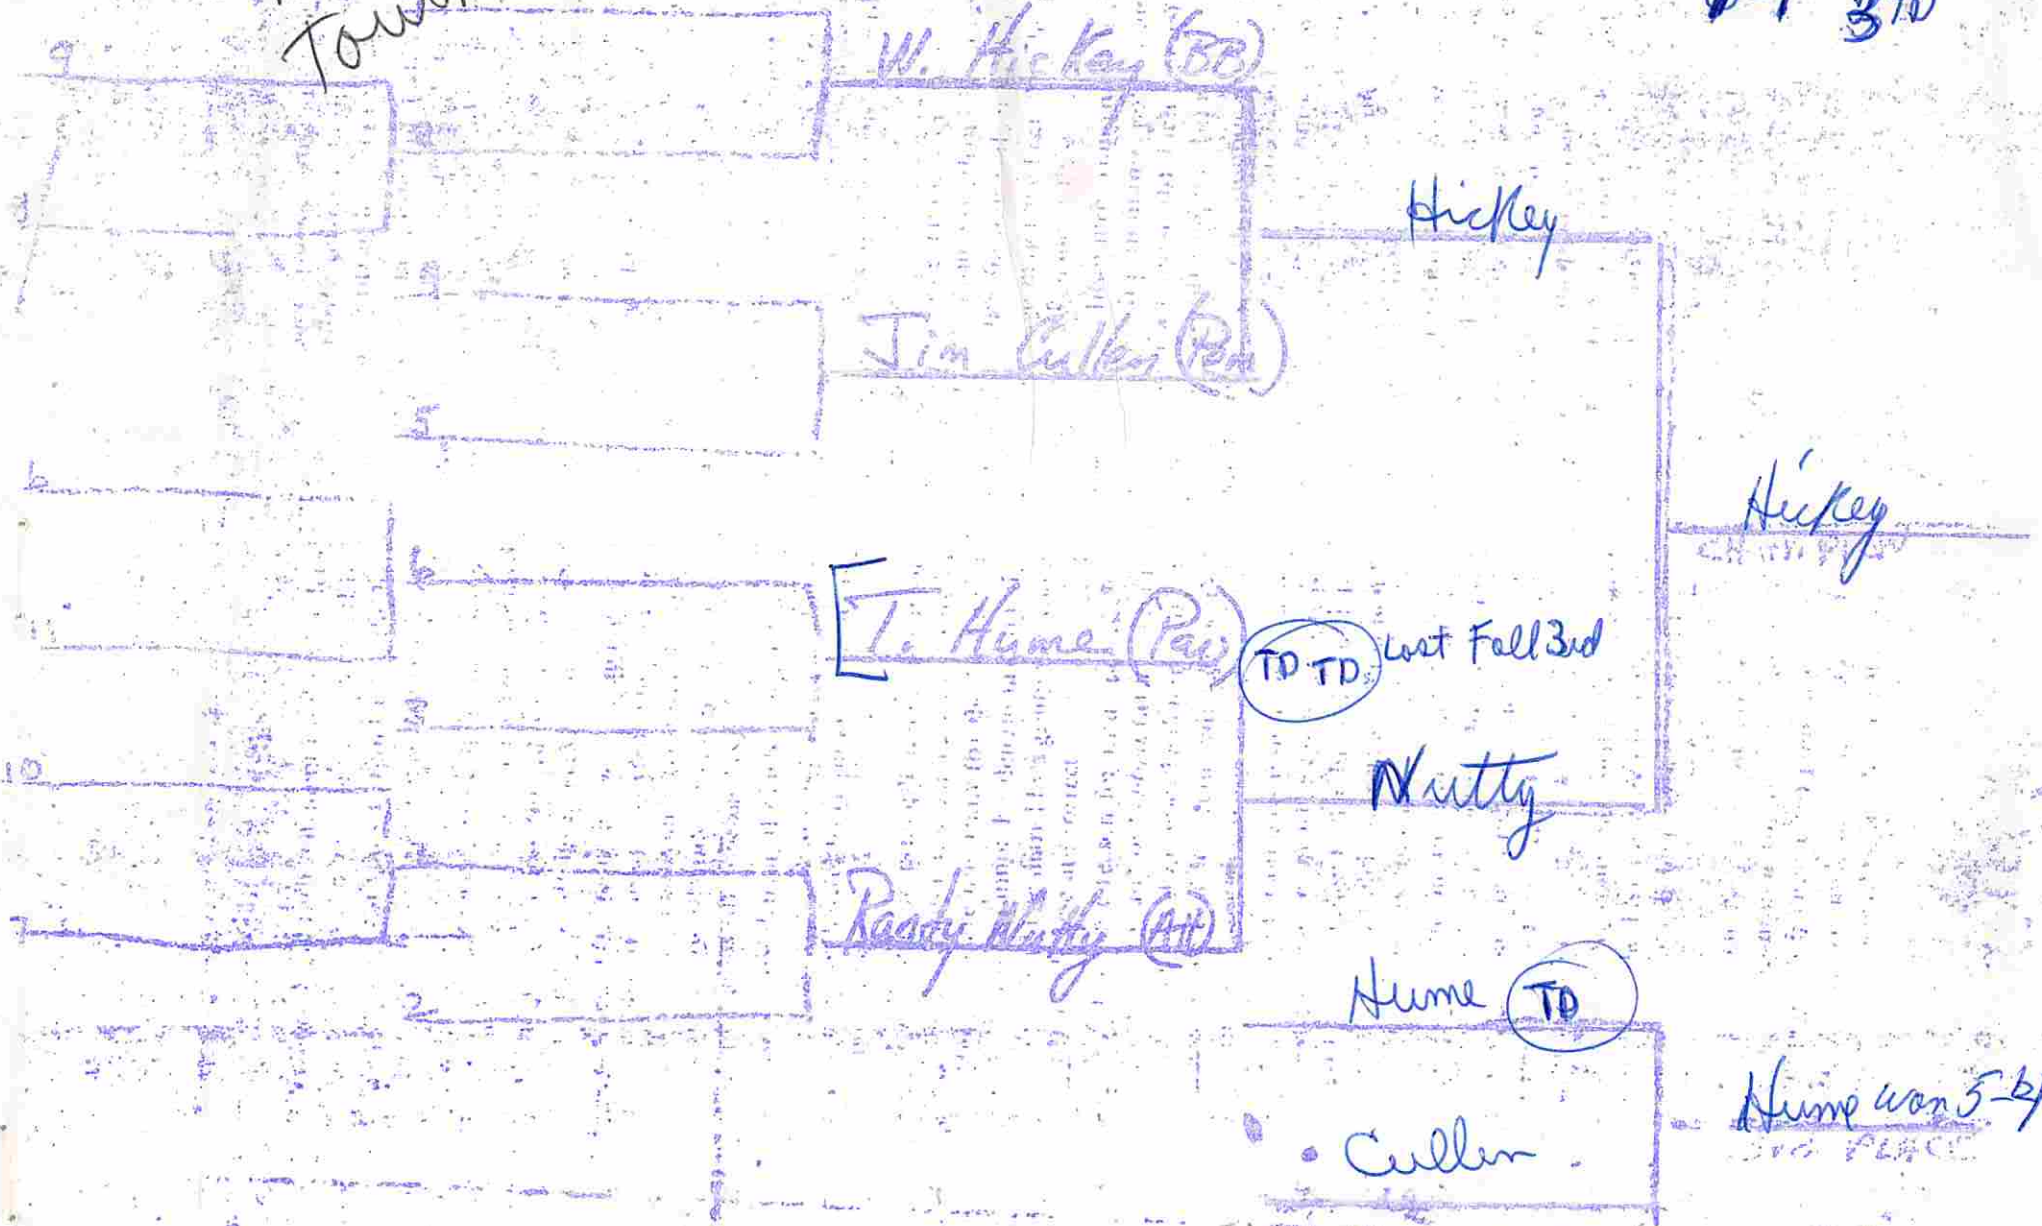 Tour
3
W. Hickey (BB)
9
Hickey
Jim Cullen (Pem)
5
6
Hickey
CHAMPION
6
T. Hume (Paw)
TD TD Lost Fall 3rd
3
10
Nutty
7
Randy Nutty (Att)
2
Hume TD
Hume won 5-
3rd PLACE
Cullen